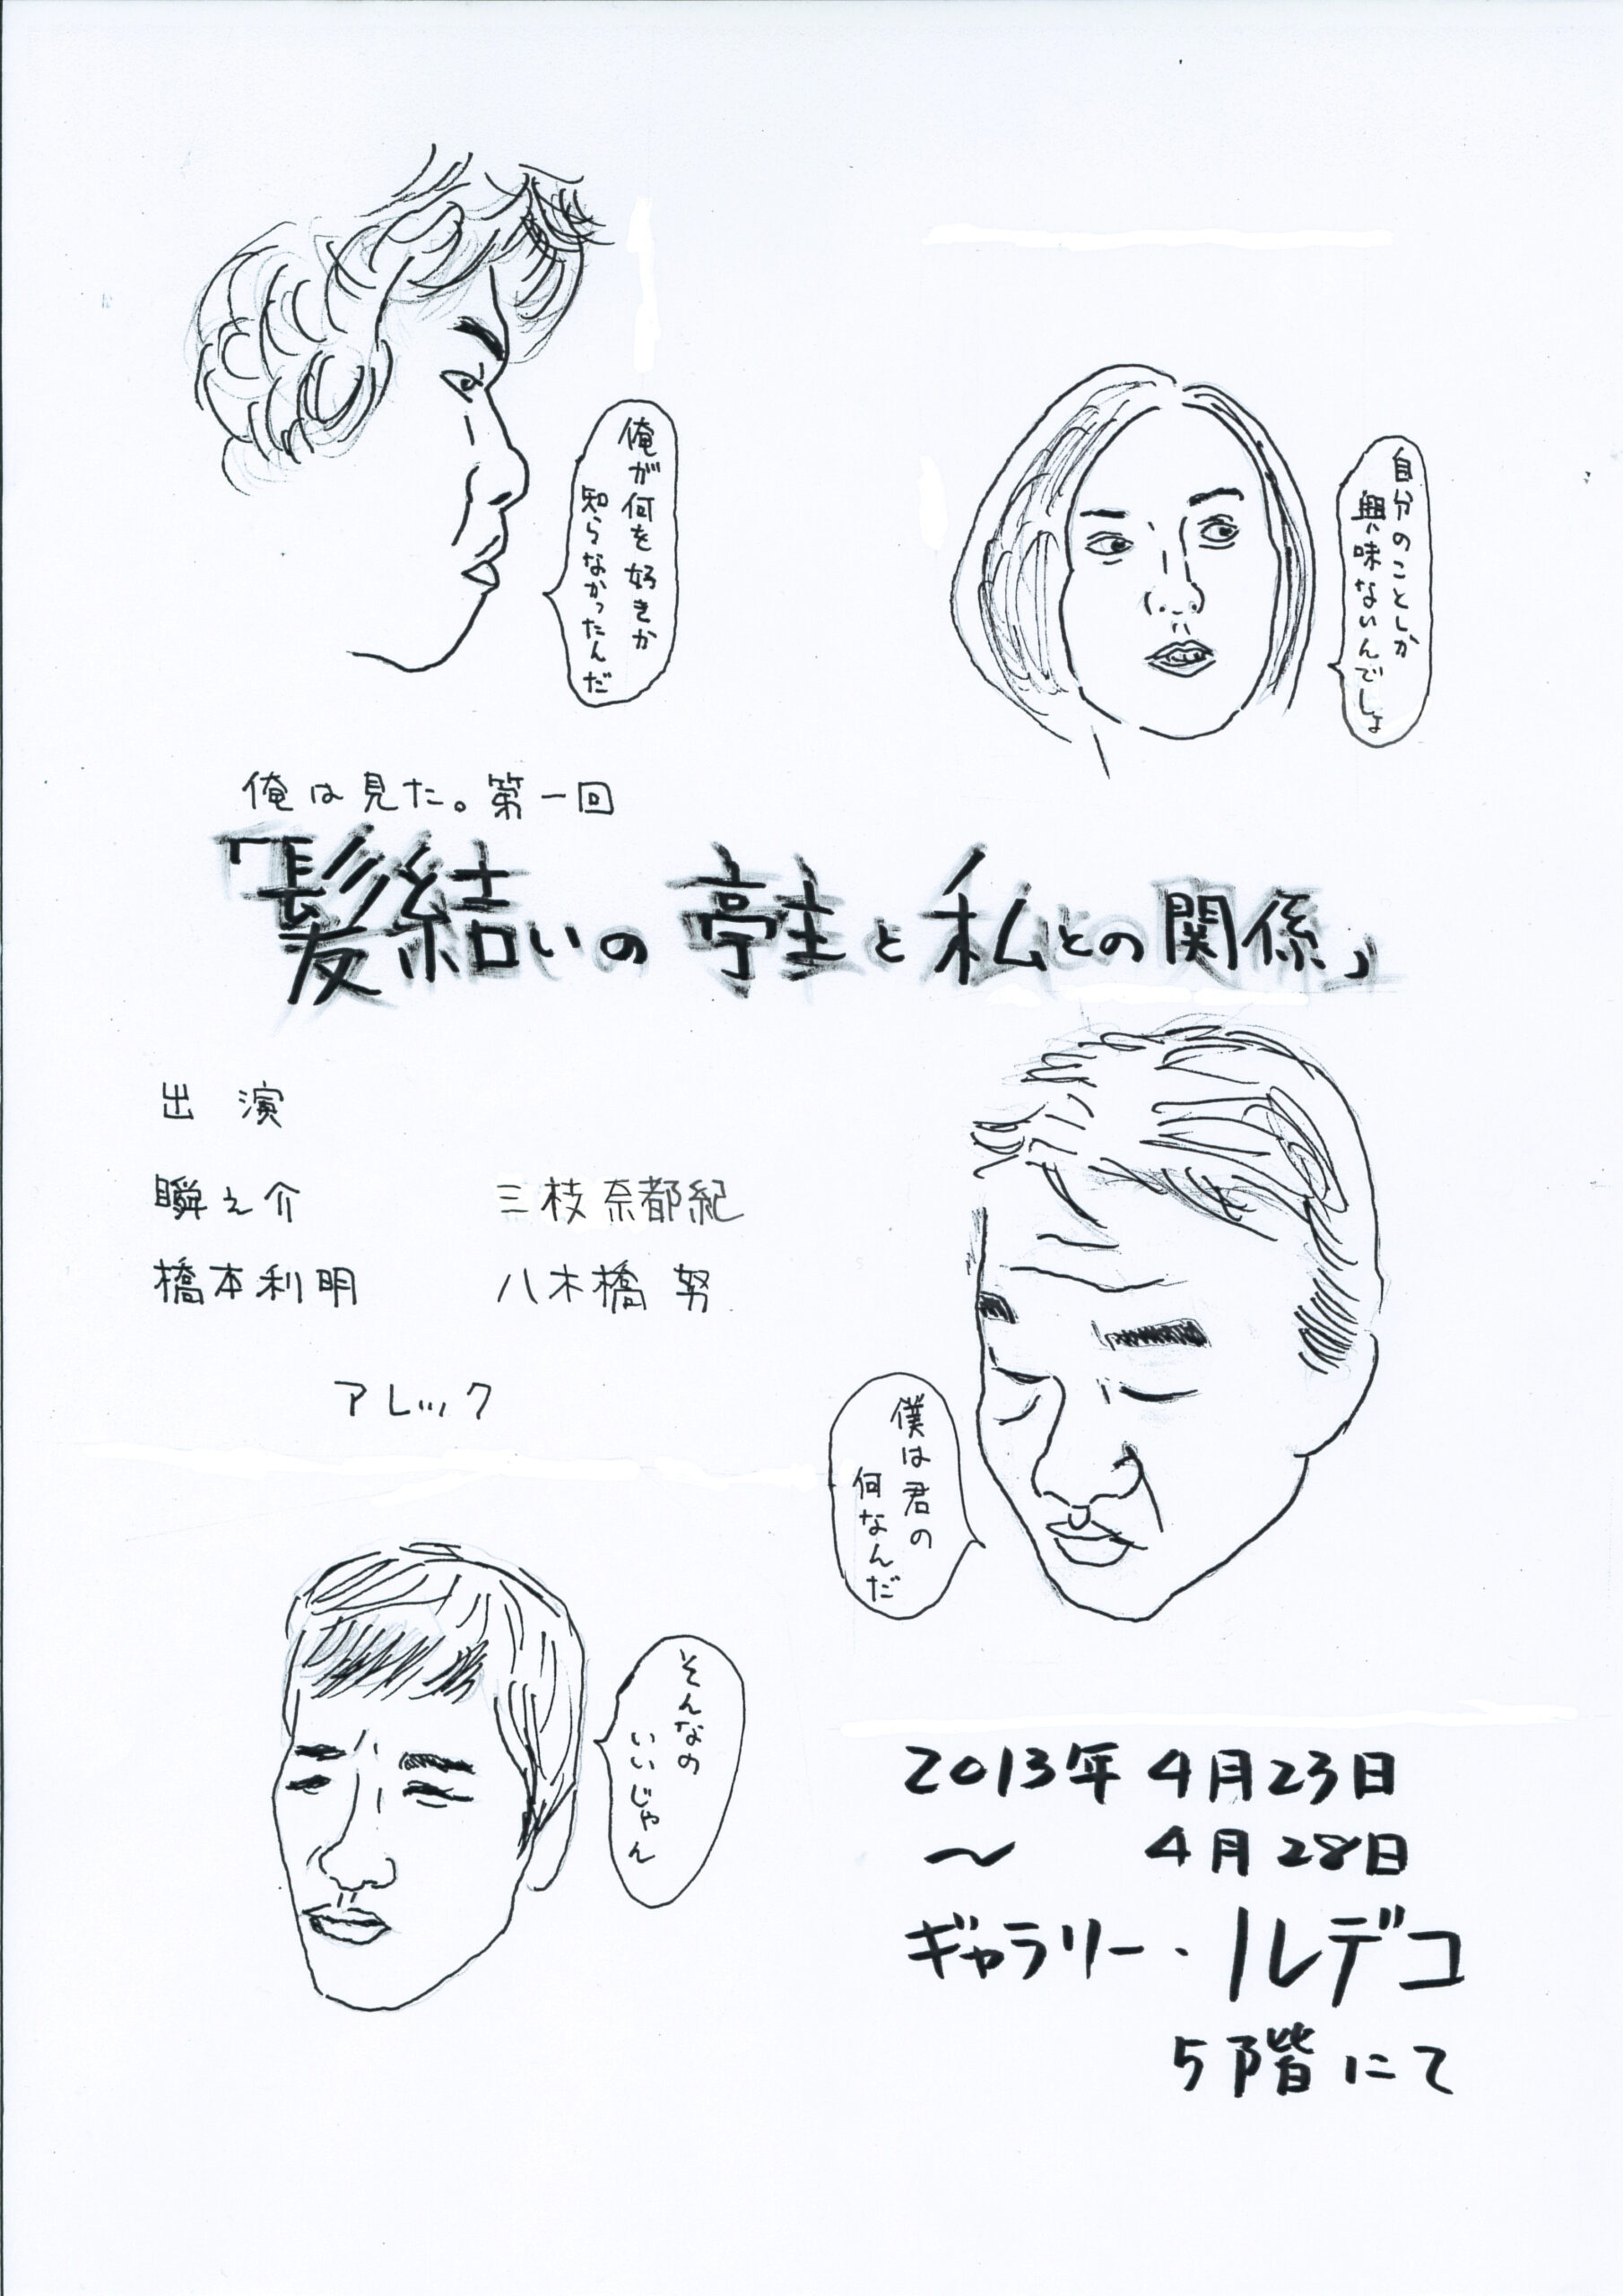 俺が何を好きか
知らなかったんだ
自分のことしか
興味ないんでしょ
俺は見た。第一回
「髪結いの亭主と私との関係」
出演
瞬之介 三枝奈都紀
橋本利明 八木橋努
アレック
僕は君の
何なんだ
そんなの
いいじゃん
2013年4月23日
〜 4月28日
ギャラリー・ルデコ
5階にて